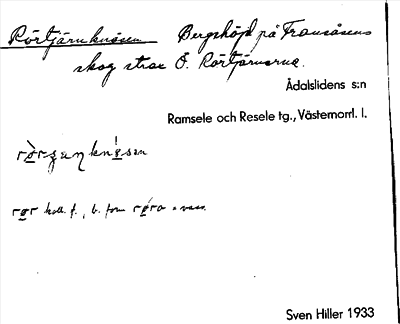 Rörtjärnknösen Bergshöjd på Fransåsens
skog strax Ö. Rörtjärnarna.
Ådalslidens s:n
Ramsele och Resele tg., Västernorrl. l.
koll. f., b. form = vass.
Sven Hiller 1933